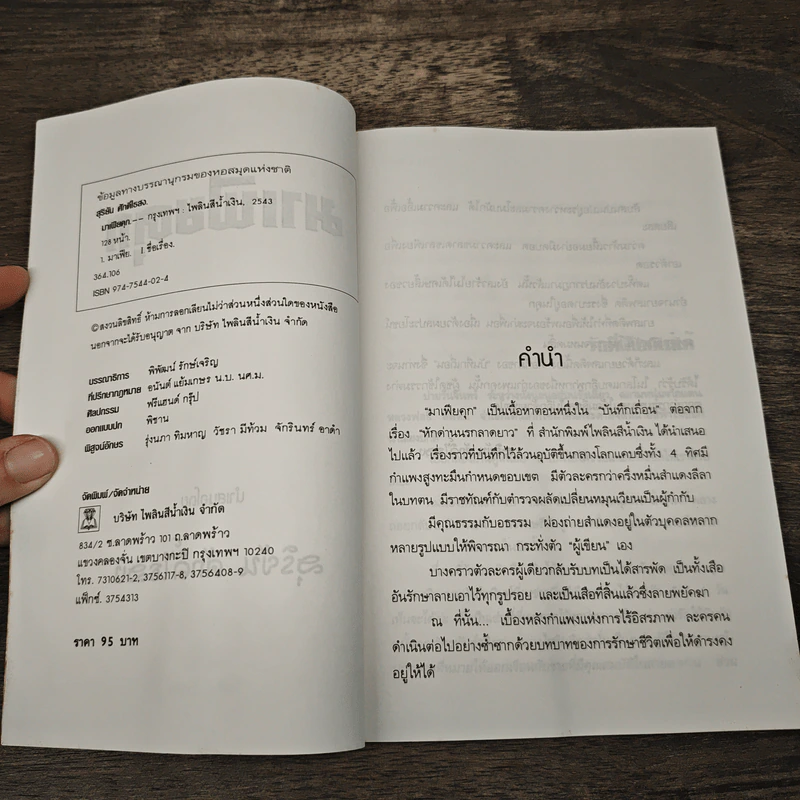 ข้อมูลทางบรรณานุกรมของหอสมุดแห่งชาติ
สุริยัน ศักดิ์ไธสง.
มาเฟียคุก.-- กรุงเทพฯ : ไพลินสีน้ำเงิน, 2543
128 หน้า.
1. มาเฟีย. I ชื่อเรื่อง.
364.106
ISBN 974-7544-02-4
©สงวนลิขสิทธิ์ ห้ามการลอกเลียนไม่ว่าส่วนหนึ่งส่วนใดของหนังสือ
นอกจากจะได้รับอนุญาต จาก บริษัท ไพลินสีน้ำเงิน จำกัด
บรรณาธิการ พิพัฒน์ รักษ์เจริญ
ที่ปรึกษากฎหมาย อนันต์ แย้มเกษร น.บ. นศ.ม.
ศิลปกรรม ฟรีแฮนด์ กรุ๊ป
ออกแบบปก พิชาน
พิสูจน์อักษร รุ่งนภา ทิมหาญ วัชรา มีท้วม จักรินทร์ อาดำ
จัดพิมพ์/จัดจำหน่าย
บริษัท ไพลินสีน้ำเงิน จำกัด
834/2 ซ.ลาดพร้าว 101 ถ.ลาดพร้าว
แขวงคลองจั่น เขตบางกะปิ กรุงเทพฯ 10240
โทร. 7310621-2, 3756117-8, 3756408-9
แฟ็กซ์. 3754313
ราคา 95 บาท
คำนำ
"มาเฟียคุก" เป็นเนื้อหาตอนหนึ่งใน "บันทึกเถื่อน" ต่อจาก
เรื่อง "หักด่านนรกลาดยาว" ที่ สำนักพิมพ์ไพลินสีน้ำเงิน ได้นำเสนอ
ไปแล้ว เรื่องราวที่บันทึกไว้ล้วนอุบัติขึ้นกลางโลกแคบซึ่งทั้ง 4 ทิศมี
กำแพงสูงทะมึนกำหนดขอบเขต มีตัวละครกว่าครึ่งหมื่นสำแดงลีลา
ในบทตน มีราชทัณฑ์กับตำรวจผลัดเปลี่ยนหมุนเวียนเป็นผู้กำกับ
มีคุณธรรมกับอธรรม ผ่องถ่ายสำแดงอยู่ในตัวบุคคลหลาก
หลายรูปแบบให้พิจารณา กระทั่งตัว "ผู้เขียน" เอง
บางคราวตัวละครผู้เดียวกลับรับบทเป็นได้สารพัด เป็นทั้งเสือ
อันรักษาลายเอาไว้ทุกรูปรอย และเป็นเสือที่สิ้นแล้วซึ่งลายพยัคฆา
ณ ที่นั้น... เบื้องหลังกำแพงแห่งการไร้อิสรภาพ ละครคน
ดำเนินต่อไปอย่างซ้ำซากด้วยบทบาทของการรักษาชีวิตเพื่อให้ดำรงคง
อยู่ให้ได้